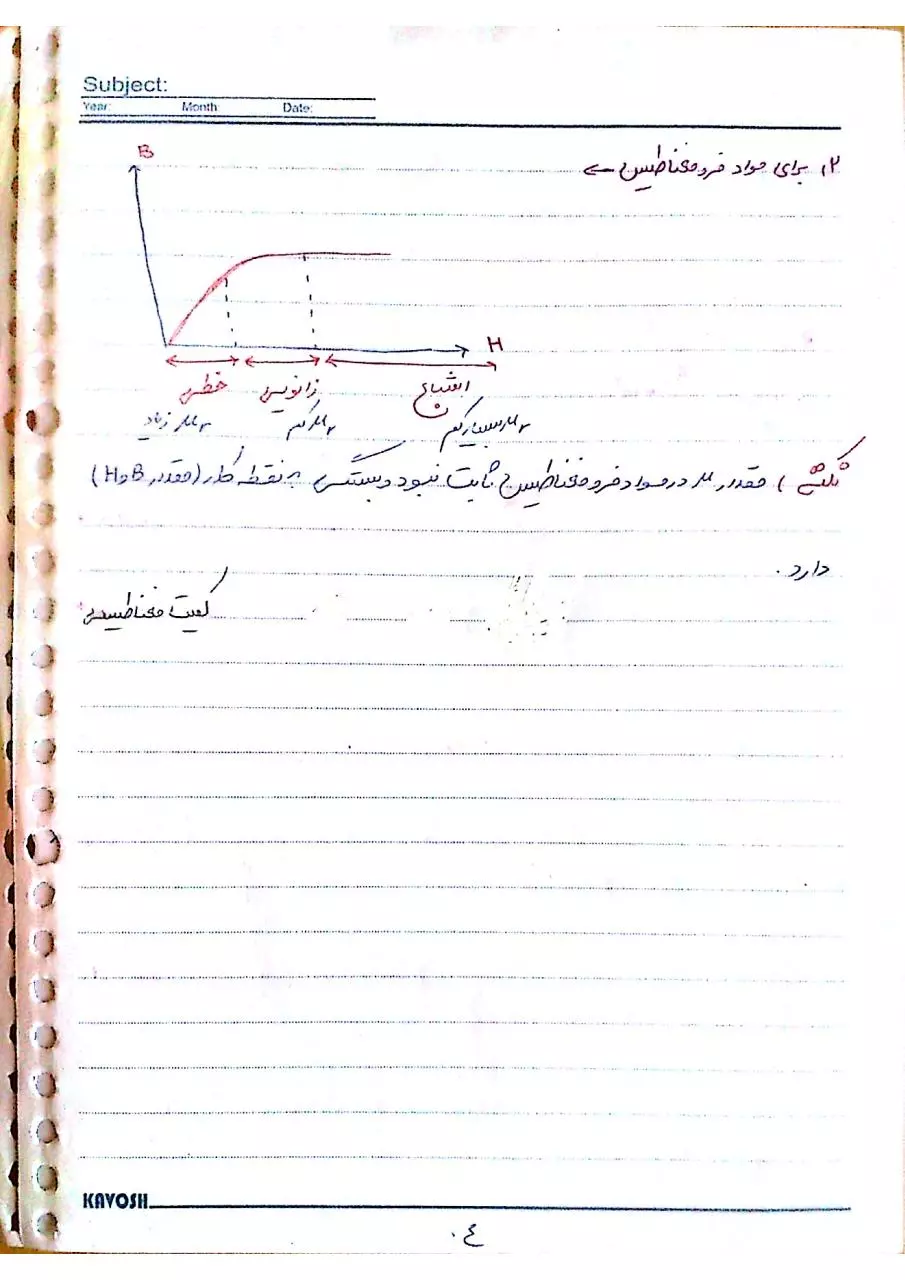 Subject:
Year: Month: Date:
۲) برای مواد فرومغناطیس ←
B
H
خطی زانویی اشباع
μr زیاد μr کم μr بسیار کم
نکته) مقدار μ در مواد فرومغناطیس ثابت نبود و بستگی به نقطه کار (مقدار B و H)
دارد.
کمیت مغناطیسی
KAVOSH
۰۴